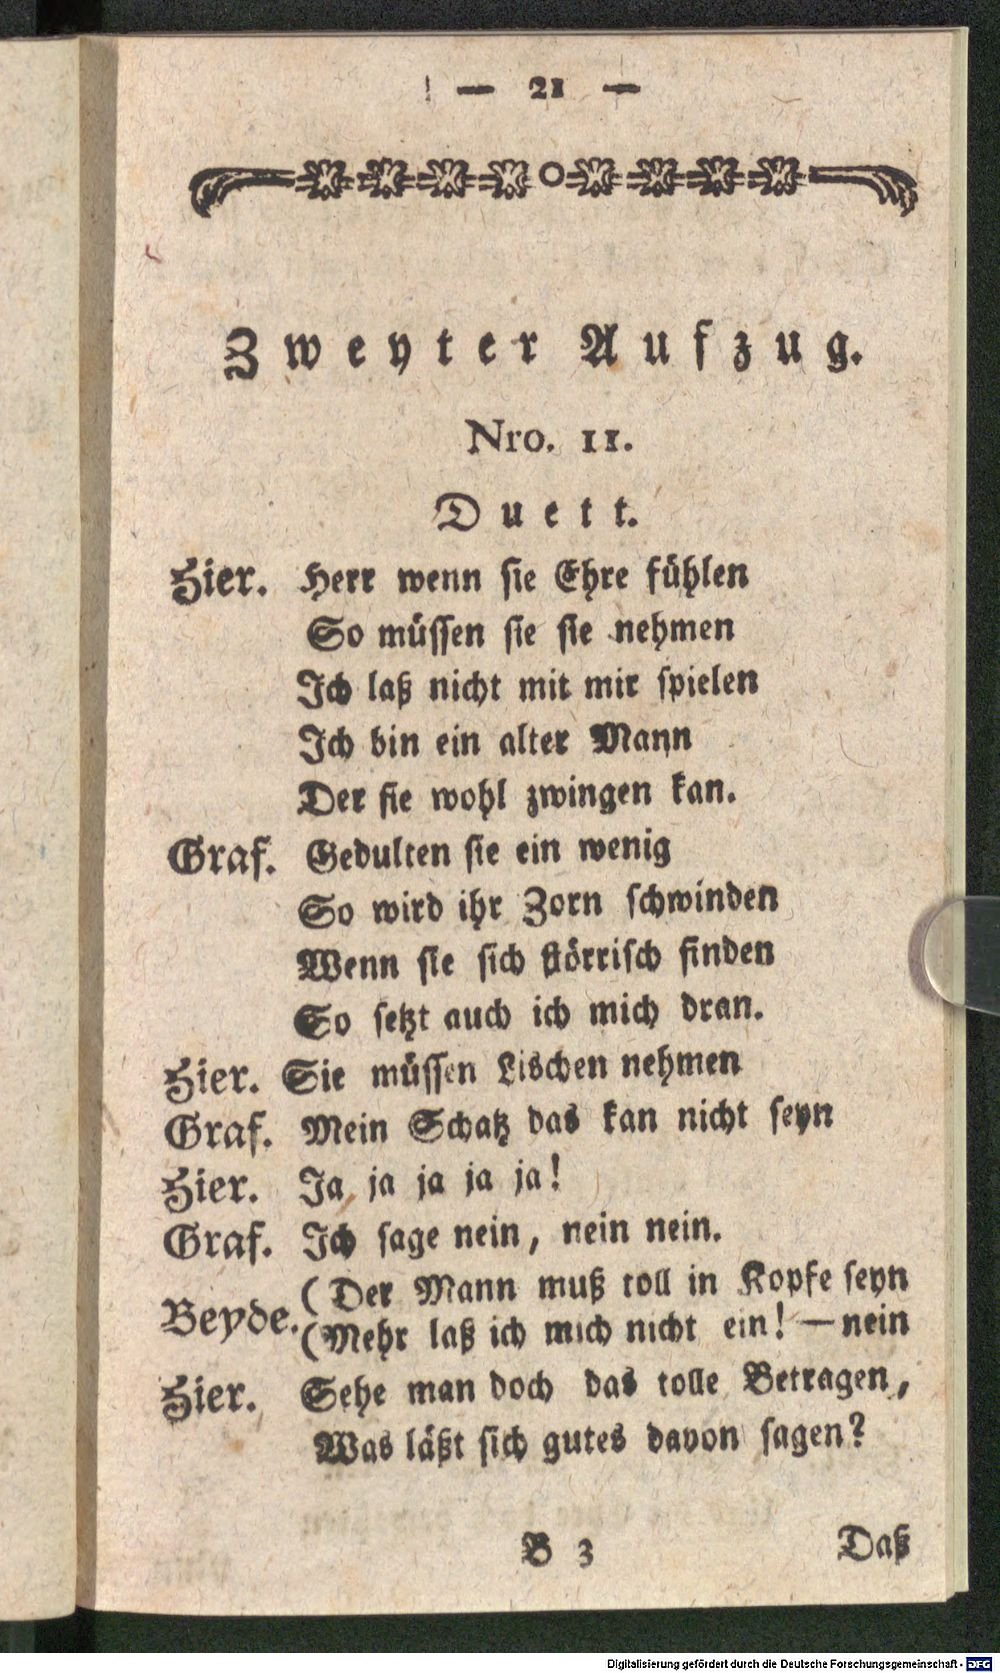 — 21 —
Zweyter Aufzug.
Nro. 11.
Duett.
Hier. Herr wenn sie Ehre fühlen
So müssen sie sie nehmen
Ich laß nicht mit mir spielen
Ich bin ein alter Mann
Der sie wohl zwingen kan.
Graf. Gedulten sie ein wenig
So wird ihr Zorn schwinden
Wenn sie sich störrisch finden
So setzt auch ich mich dran.
Hier. Sie müssen Lischen nehmen
Graf. Mein Schatz das kan nicht seyn
Hier. Ja ja ja ja ja!
Graf. Ich sage nein, nein nein.
Beyde. (Der Mann muß toll in Kopfe seyn
(Mehr laß ich mich nicht ein! — nein
Hier. Sehe man doch das tolle Betragen,
Was läßt sich gutes davon sagen?
B 3 Daß
Digitalisierung gefördert durch die Deutsche Forschungsgemeinschaft - DFG